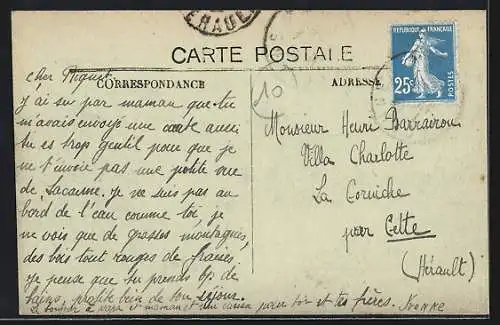 HERAUL
CARTE POSTALE
CORRESPONDANCE
ADRESSE
REPUBLIQUE FRANÇAISE
25c
POSTES
(10
cher Piquet
j'ai su par maman que tu
m'avais envoyé une carte aussi
tu es trop gentil pour que je
ne t'envoie pas une petite vue
de Lacaune. je ne suis pas au
bord de l'eau comme toi, je
ne vois que de grosses montagnes,
des bois tout rouges de fraises
je pense que tu prends bp de
bains, profite bien de ton séjour.
Le bonjour à papa et maman et un baiser pour toi et tes frères.
Monsieur Henri Barrairon
Villa Charlotte
La Corniche
par Cette
(Hérault)